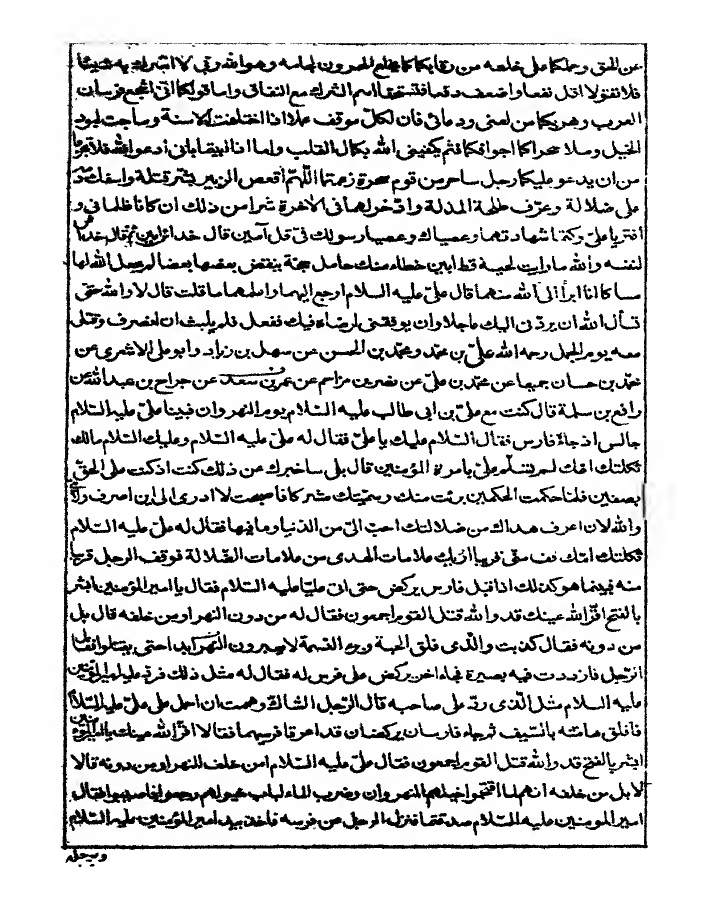 عن الحق وحملكما على خلعه من رقابكما كما يخلع الحرون لجامه وهو الله ربي لا اشرك به شيئا
فلا تقولا اقل نفعا واضعف دفعا فتستحقا اسم الشرك مع النفاق واما قولكما اني اشجع فرسان
العرب وهربكما من لعني ودعائي فان لكل موقف عملا اذا اختلفت الاسنة وماجت لبود
الخيل وملا سحراكما اجوافكما فثم يكفيني الله بكمال القلب واما اذا ابيتما باني ادعو الله فلا تجزعا
من ان يدعو عليكما رجل ساحر من قوم سحرة زعمتما اللهم اقعص الزبير بشر قتلة واسفك دمه
على ضلالة وعرف طلحة المذلة وادخر لهما في الاخرة شرا من ذلك ان كانا ظلماني و
افتريا علي وكتما شهادتهما وعصياك وعصيا رسولك في قل آمين قال خداش آمين ثم قال خداش
لنفسه والله ما رايت لحية قط ابين خطاء منك حامل حجة ينقض بعضها بعضا لم يجعل الله لها
مساكا انا ابرأ الى الله منهما قال علي عليه السلام ارجع اليهما واعلمهما ما قلت قال لا والله حتى
تسأل الله ان يردني اليك عاجلا وان يوفقني لرضاه فيك ففعل فلم يلبث ان انصرف وقتل
معه يوم الجمل رحمه الله علي بن محمد ومحمد بن الحسن عن سهل بن زياد وابو علي الاشعري عن
محمد بن حسان جميعا عن محمد بن علي عن نصر بن مزاحم عن عمر بن سعد عن جراح بن عبد الله عن
رافع بن سلمة قال كنت مع علي بن ابي طالب عليه السلام يوم النهروان فبينا علي عليه السلام
جالس اذ جاء فارس فقال السلام عليك يا علي فقال له علي عليه السلام وعليك السلام مالك
ثكلتك امك لم تسلم علي بامرة المؤمنين قال بلى ساخبرك عن ذلك كنت اذ كنت على الحق
بصفين فلما حكمت الحكمين برئت منك وسميتك مشركا فاصبحت لا ادري الى اين اصرف ولايتي
والله لان اعرف هداك من ضلالتك احب الي من الدنيا وما فيها فقال له علي عليه السلام
ثكلتك امك قف مني قريبا اريك علامات الهدى من علامات الضلالة فوقف الرجل قريبا
منه فبينما هو كذلك اذ اقبل فارس يركض حتى اتى عليا عليه السلام فقال يا امير المؤمنين ابشر
بالفتح اقر الله عينك قد والله قتل القوم اجمعون فقال له من دون النهر او من خلفه قال بل
من دونه فقال كذبت والذي فلق الحبة وبرء النسمة لا يعبرون النهر ابدا حتى يقتلوا فقال
الرجل فازددت فيه بصيرة فجاء اخر يركض على فرس له فقال له مثل ذلك فرد عليه امير المؤمنين
عليه السلام مثل الذي رد على صاحبه قال الرجل الشاك وهممت ان احمل على علي عليه السلام
فافلق هامته بالسيف ثم جاء فارسان يركضان قد اعرقا فرسيهما فقالا اقر الله عينك يا امير المؤمنين
ابشر بالفتح قد والله قتل القوم اجمعون فقال علي عليه السلام امن خلف النهر او من دونه قالا
لا بل من خلفه انهم لما اقتحموا خيلهم النهروان وضرب الماء لبات خيولهم رجعوا فاصيبوا فقال
امير المومنين عليه السلام صدقتما فنزل الرجل عن فرسه فاخذ بيد امير المؤمنين عليه السلام
وبرجله